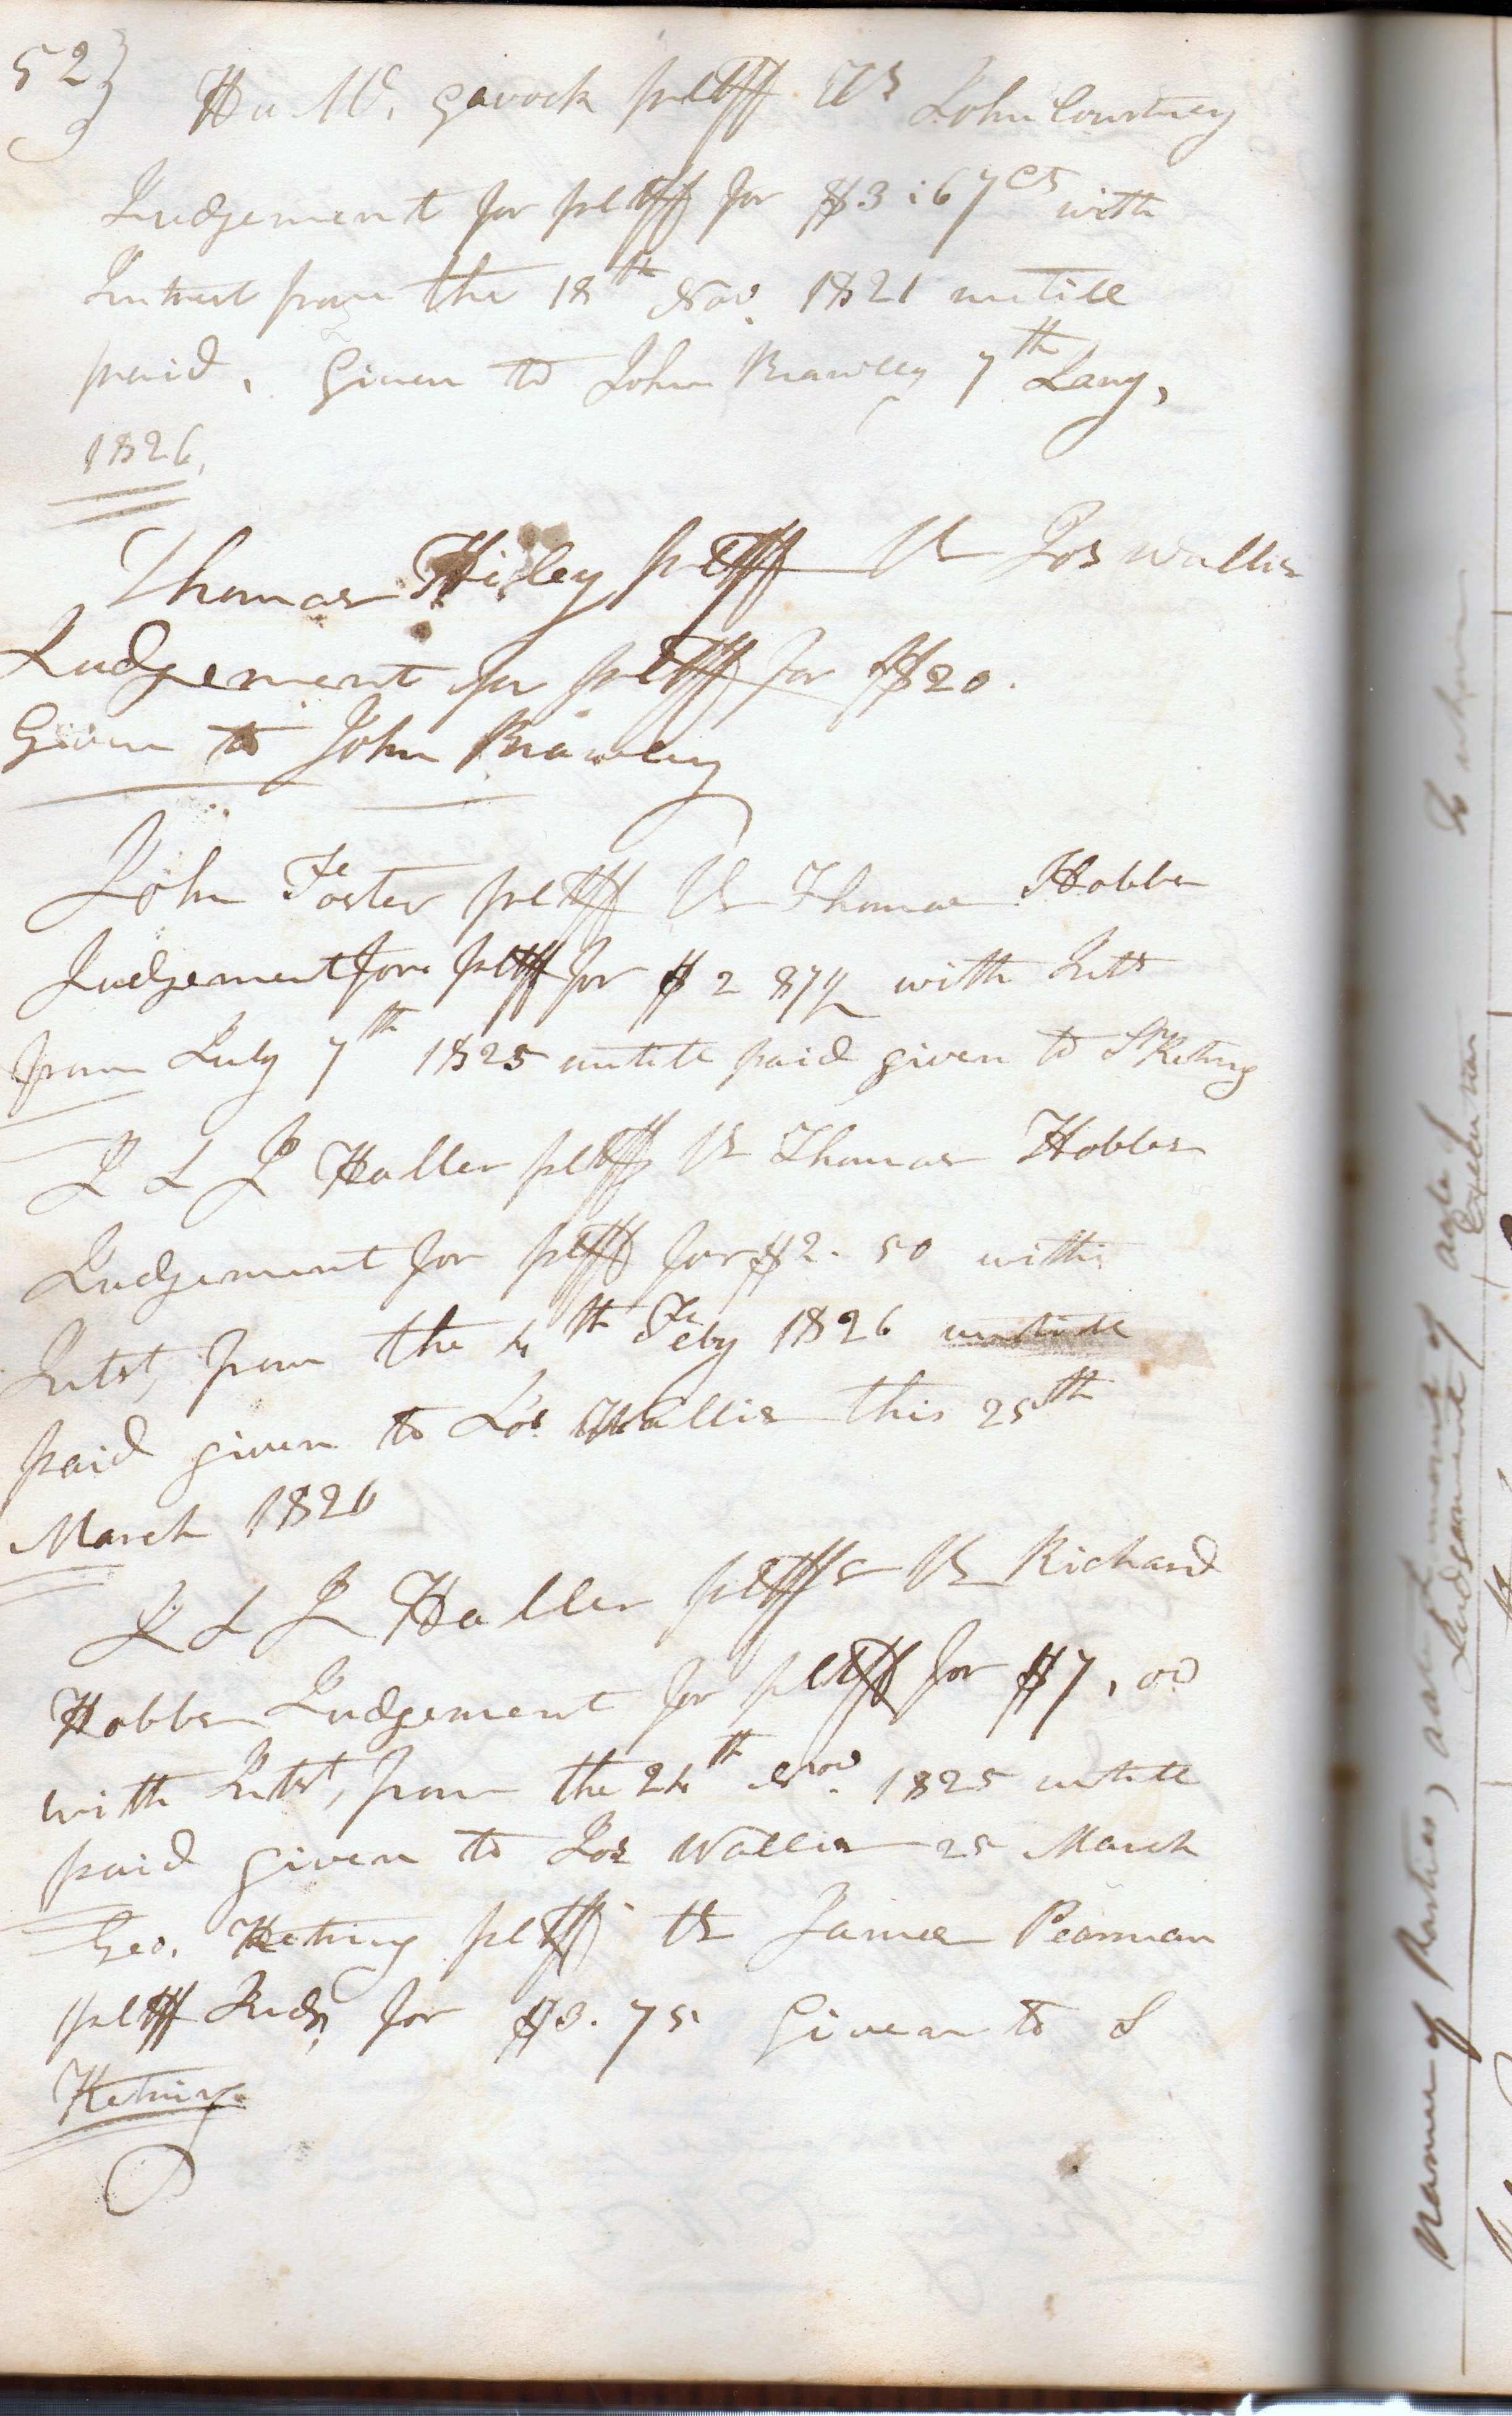 52}
Hu Mc. Gavock pltff Vs John Courtney
Judgement for pltff for $3:67cts with
Intrest from the 18th Nov. 1821 untill
paid, Given to John Brawley 7th Jany,
1826,
Thomas Hiley pltff Vs Jos Wallis
Judgement for pltff for $20.
Given to John Brawley
John Foster pltff Vs Thomas Hobbs
Judgement for pltff for $2 87½ with Intt
from July 7th 1825 untill paid given to Ketring
J & J Haller pltff Vs Thomas Hobbs
Judgement for pltff for $2. 50 with
Intst, from the 4th Feby 1826 untill
paid given to Jos. Wallis this 25th
March 1826
J & J Haller pltffs Vs Richard
Hobbs Judgement for pltff for $7, 00
with Intst, from the 24th Nov. 1825 untill
paid given to Jos Wallis 25 March
Geo. Ketring pltff Vs James Pearman
pltff Judg for $3. 75 Given to S
Ketring
Names of Parties, amount of
Judgement
date of
Execution
To whom